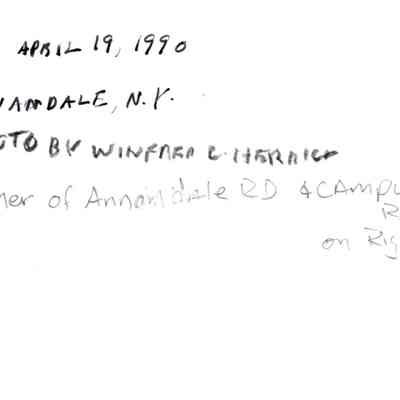 APRIL 19, 1990
NANDALE, N.Y.
OTO BY WINFRED C. HERRICK
ner of Annandale RD & CAMPU
R
on Rig